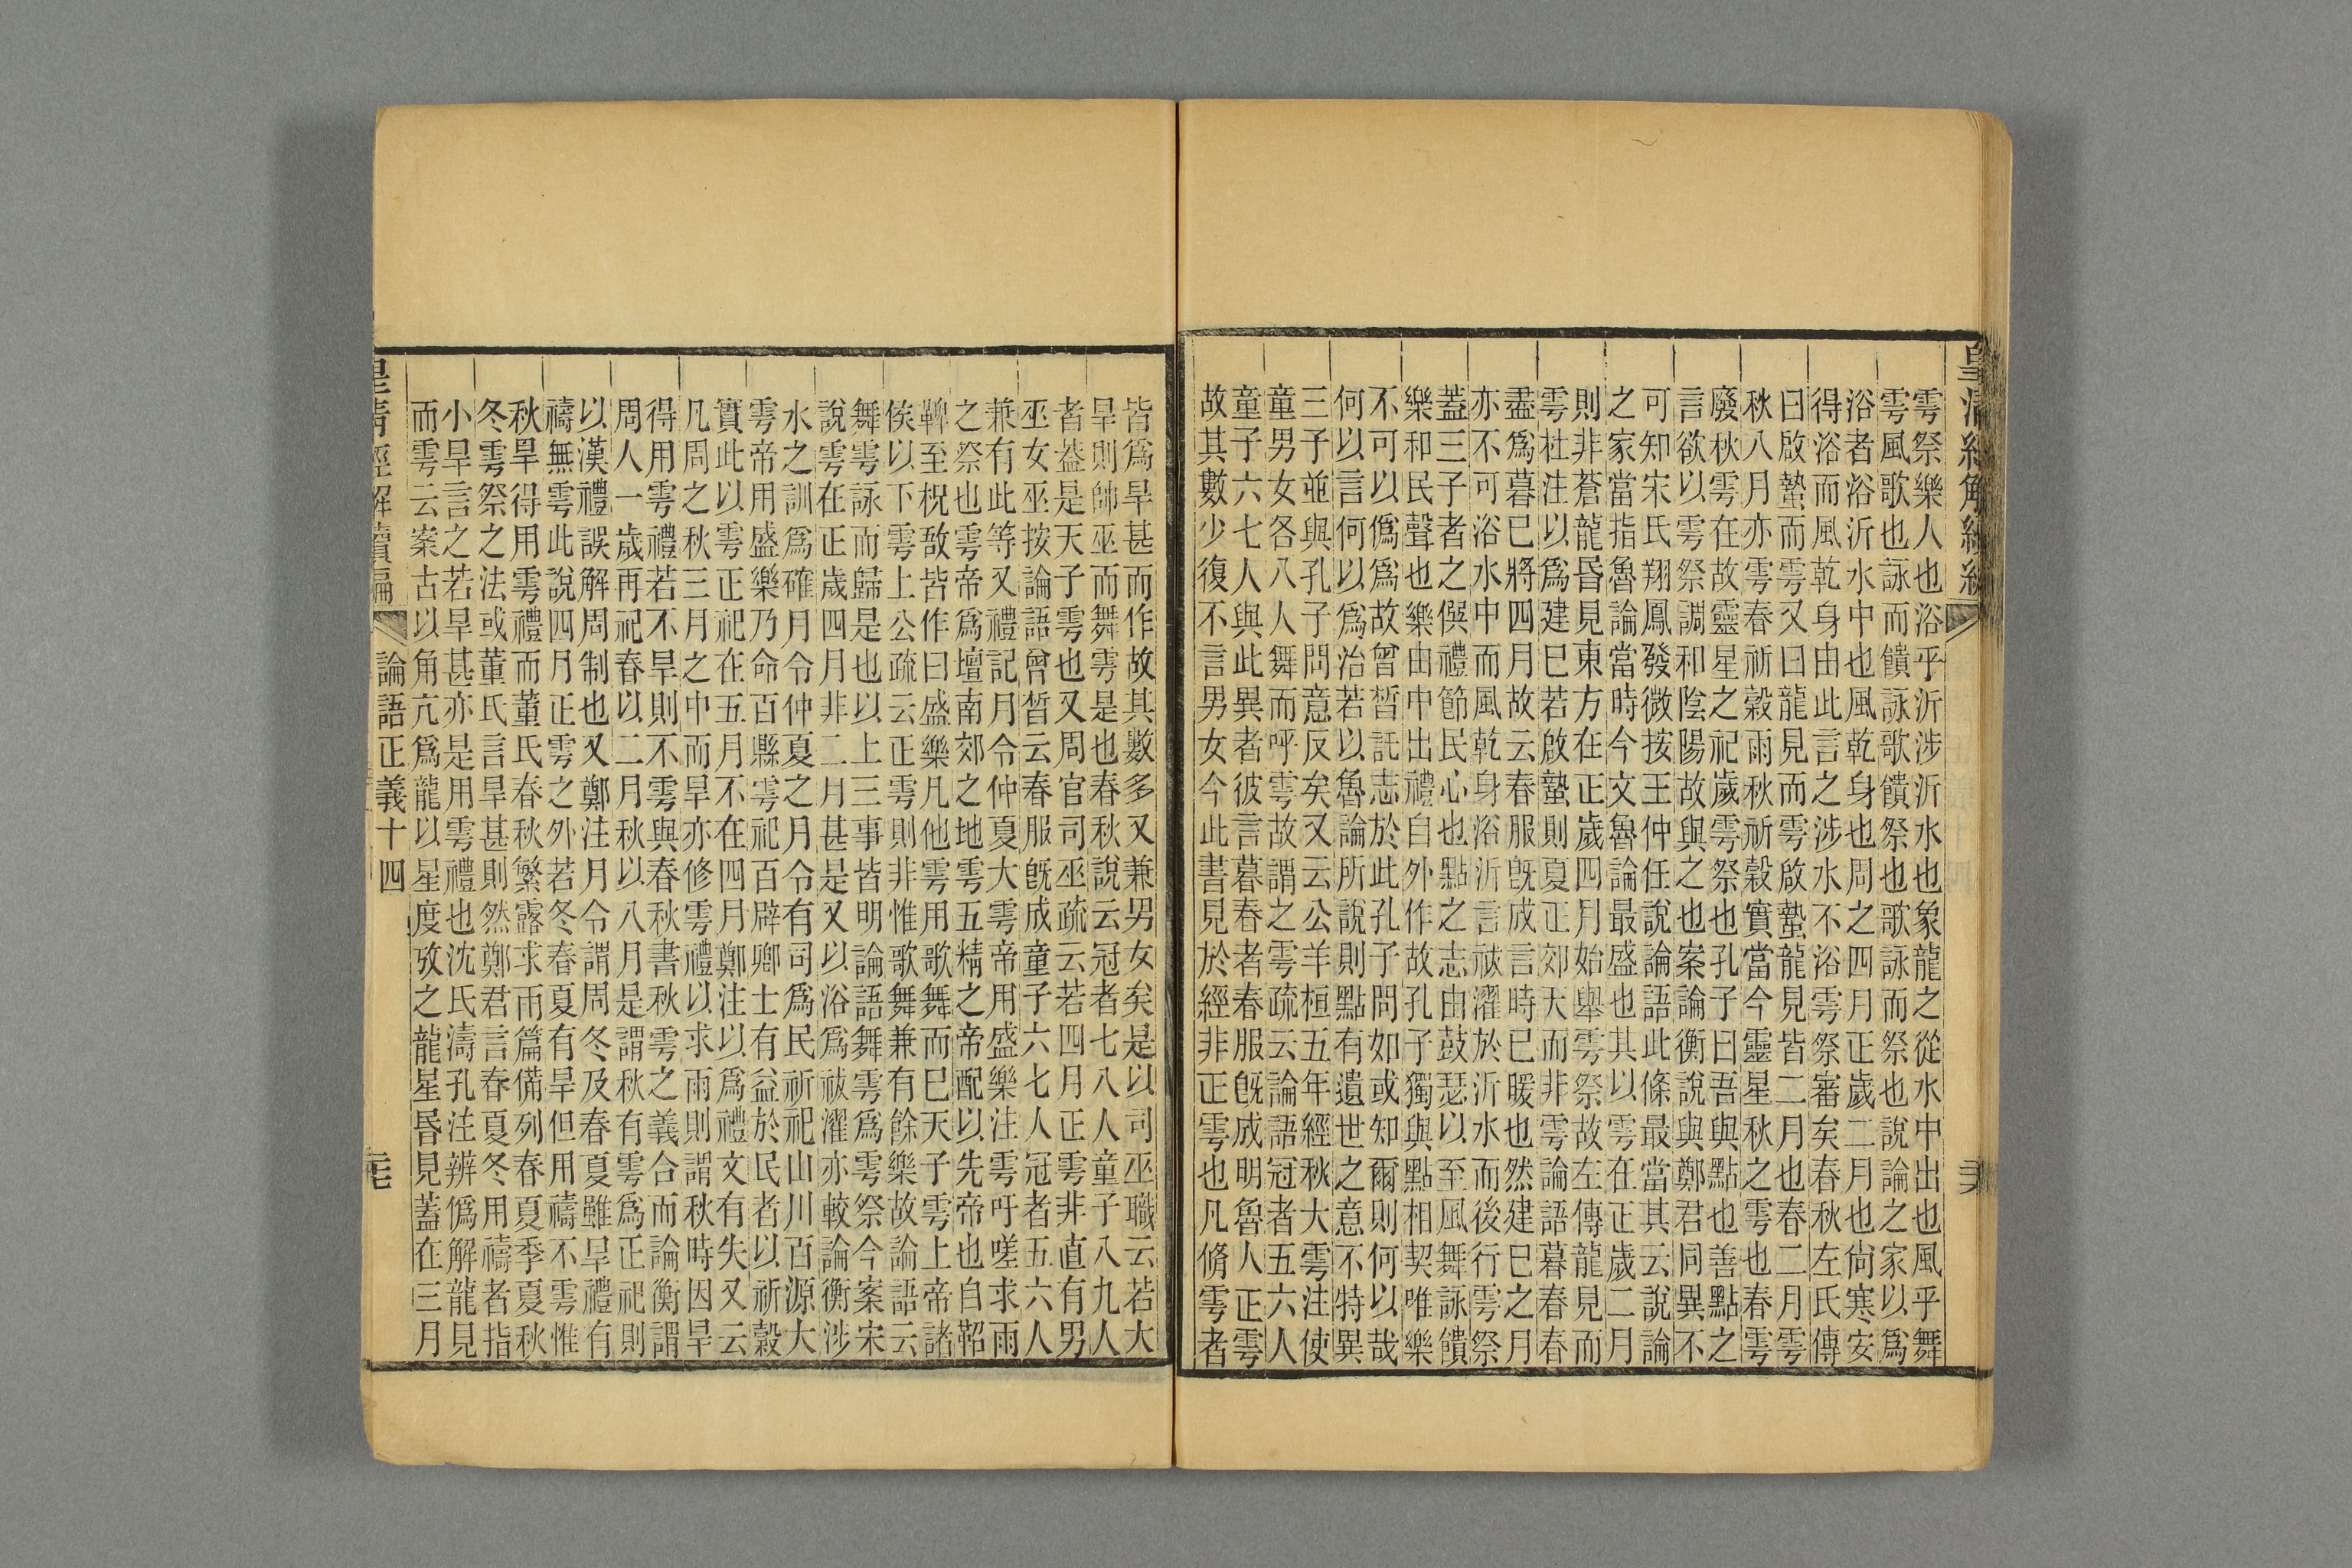 雩祭樂人也浴乎沂涉沂水也象龍之從水中出也風乎舞
雩風歌也詠而饋詠歌饋祭也歌詠而祭也說論之家以為
浴者浴沂水中也風乾身也周之四月正歲二月也尙寒安
得浴而風乾身由此言之涉水不浴雩祭審矣春秋左氏傳
曰啟蟄而雩又曰龍見而雩啟蟄龍見皆二月也春二月雩
秋八月亦雩春祈穀雨秋祈穀實當今靈星秋之雩也春雩
廢秋雩在故靈星之祀歲雩祭也孔子曰吾與點也善點之
言欲以雩祭調和陰陽故與之也案論衡說與鄭君同異不
可知宋氏翔鳳發微按王仲任說論語此條最當其云說論
之家當指魯論當時今文魯論最盛也其以雩在正歲二月
則非蒼龍昏見東方在正歲四月始舉雩祭故左傳龍見而
雩杜注以為建巳若啟蟄則夏正郊天而非雩論語暮春春
盡為暮巳將四月故云春服旣成言時已暖也然建巳之月
亦不可浴水中而風乾身浴沂言祓濯於沂水而後行雩祭
蓋三子者之僎禮節民心也點之志由鼓瑟以至風舞詠饋
樂和民聲也樂由中出禮自外作故孔子獨與點相契唯樂
不可以僞為故曾晳託志於此孔子問如或知爾則何以哉
何以言何以為治若以魯論所說則點有遺世之意不特異
三子並與孔子問意反矣又云公羊桓五年經秋大雩注使
童男女各八人舞而呼雩故謂之雩疏云論語冠者五六人
童子六七人與此異者彼言暮春者春服旣成明魯人正雩
故其數少復不言男女今此書見於經非正雩也凡脩雩者
皆為旱甚而作故其數多又兼男女矣是以司巫職云若大
旱則帥巫而舞雩是也春秋說云冠者七八人童子八九人
者葢是天子雩也又周官司巫疏云若四月正雩非直有男
巫女巫按論語曾晳云春服旣成童子六七人冠者五六人
兼有此等又禮記月令仲夏大雩帝用盛樂注雩吁嗟求雨
之祭也雩帝為壇南郊之地雩五精之帝配以先帝也自鞀
鞞至柷敔皆作曰盛樂凡他雩用歌舞而已天子雩上帝諸
侯以下雩上公疏云正雩則非惟歌舞兼有餘樂故論語云
舞雩詠而歸是也以上三事皆明論語舞雩為雩祭今案宋
說雩在正歲四月非二月甚是又以浴為祓濯亦較論衡涉
水之訓為確月令仲夏之月令有司為民祈祀山川百源大
雩帝用盛樂乃命百縣雩祀百辟卿士有益於民者以祈穀
實此以雩正祀在五月不在四月鄭注以為禮文有失又云
凡周之秋三月之中而旱亦修雩禮以求雨則謂秋時因旱
得用雩禮若不旱則不雩與春秋書秋雩之義合而論衡謂
周人一歲再祀春以二月秋以八月是謂秋有雩為正祀則
以漢禮誤解周制也又鄭注月令謂周冬及春夏雖旱禮有
禱無雩此說四月正雩之外若冬春夏有旱但用禱不雩惟
秋旱得用雩禮而董氏春秋繁露求雨篇備列春夏季夏秋
冬雩祭之法或董氏言旱甚則然鄭君言春夏冬用禱者指
小旱言之若旱甚亦是用雩禮也沈氏濤孔注辨僞解龍見
而雩云案古以角亢為龍以星度攷之龍星昏見蓋在三月
論語正義十四